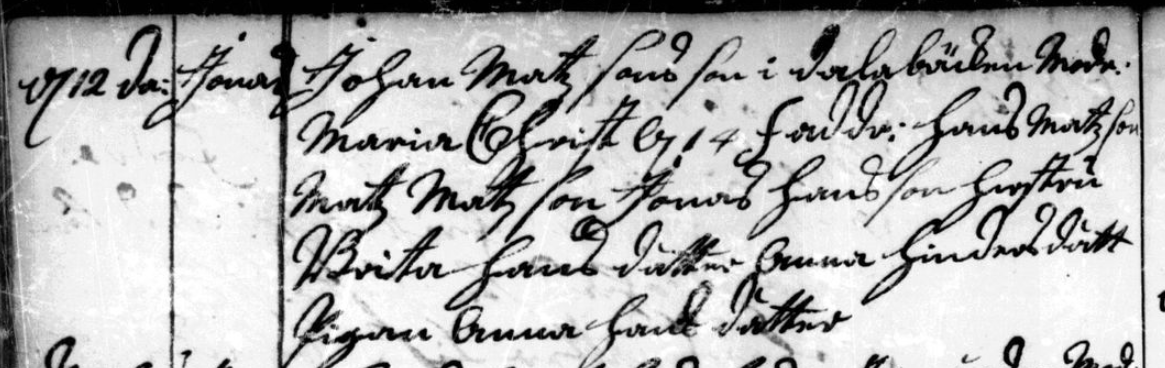 d 12 Do: Jonas Johan Matz sons son i dalabäcken Modr:
Maria Christ d 14 Faddr: Hans Matz son
Matz Matz son Jonas Hans son hustru
Brita Hans dotter Anna Hinders dott
Pigan Anna Hans dotter